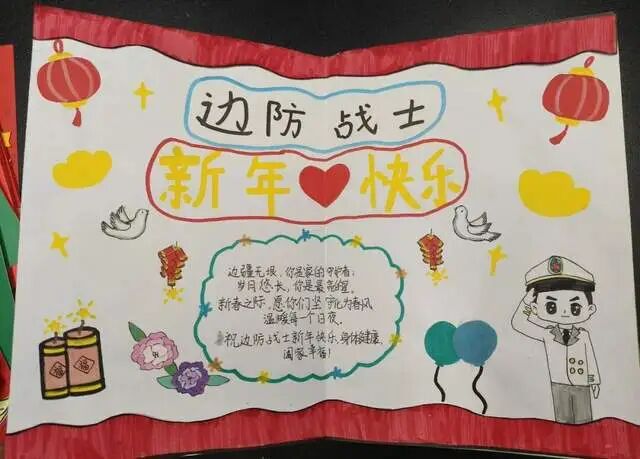 边防战士
新年快乐
边疆无垠，你是家的守护者；
岁月悠长，你是最亮的星。
新春之际，愿你们坚守化为春风
温暖每一个日夜。
祝边防战士新年快乐，身体健康，
阖家幸福！
福
福